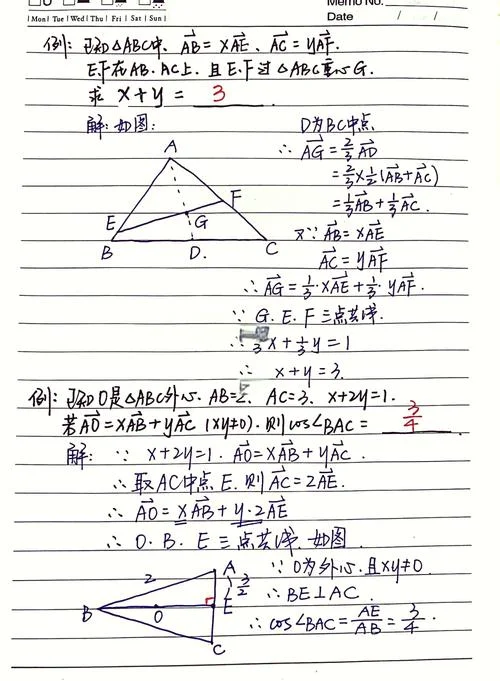 Memo No.
Mon Tue Wed Thu Fri Sat Sun
Date / /
例: 已知△ABC中, AB→ = xAE→、AC→ = yAF→.
E.F在AB、AC上. 且E.F过△ABC重心G.
求 x+y = 3 .
解: 如图:
D为BC中点
A
E
F
G
B
D.
C
∴ AG→ = 2/3 AD→
= 2/3 × 1/2 (AB→ + AC→)
= 1/3 AB→ + 1/3 AC→.
又∵ AB→ = xAE→
AC→ = yAF→
∴ AG→ = 1/3 · xAE→ + 1/3 · yAF→.
∵ G、E、F三点共线.
∴ 3 x + 1/3 y = 1
∴ x+y = 3.
例: 已知O是△ABC外心. AB=2. AC=3. x+2y=1.
若AO→ = xAB→ + yAC→ (xy≠0). 则cos∠BAC = 3/4 .
解: ∵ x+2y=1. AO→ = xAB→ + yAC→.
∴ 取AC中点E. 则AC→ = 2AE→.
∴ AO→ = xAB→ + y·2AE→
∴ O、B、E三点共线. 如图
A
2
3/2
B
O
E
C
∵ O为外心. 且xy≠0.
∴ BE⊥AC.
∴ cos∠BAC = AE/AB = 3/4 .